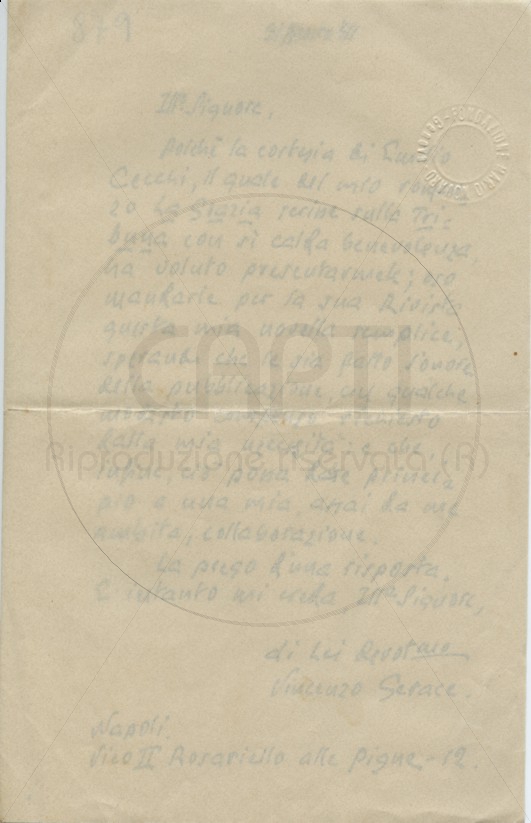 879
Ill. Signore,
Poiché la cortesia di Emilio
Cecchi, il quale del mio roman-
zo La Grazia scrisse sulla Tri-
buna con sì calda benevolenza,
ha voluto presentarmele; oso
mandarle per la sua Rivista
questa mia novella semplice,
sperando che le sia fatto l'onore
della pubblicazione, con qualche
modesto compenso richiesto
dalla mia necessità; e che,
infine, ciò possa dare princi-
pio a una mia, assai da me
ambita, collaborazione.
La prego d'una risposta.
E intanto mi creda Ill. Signore,
di Lei Devot.mo
Vincenzo Gerace.
Napoli.
Vico II Rosariello alle Pigne - 12.
CAPTI
Riproduzione riservata (R)